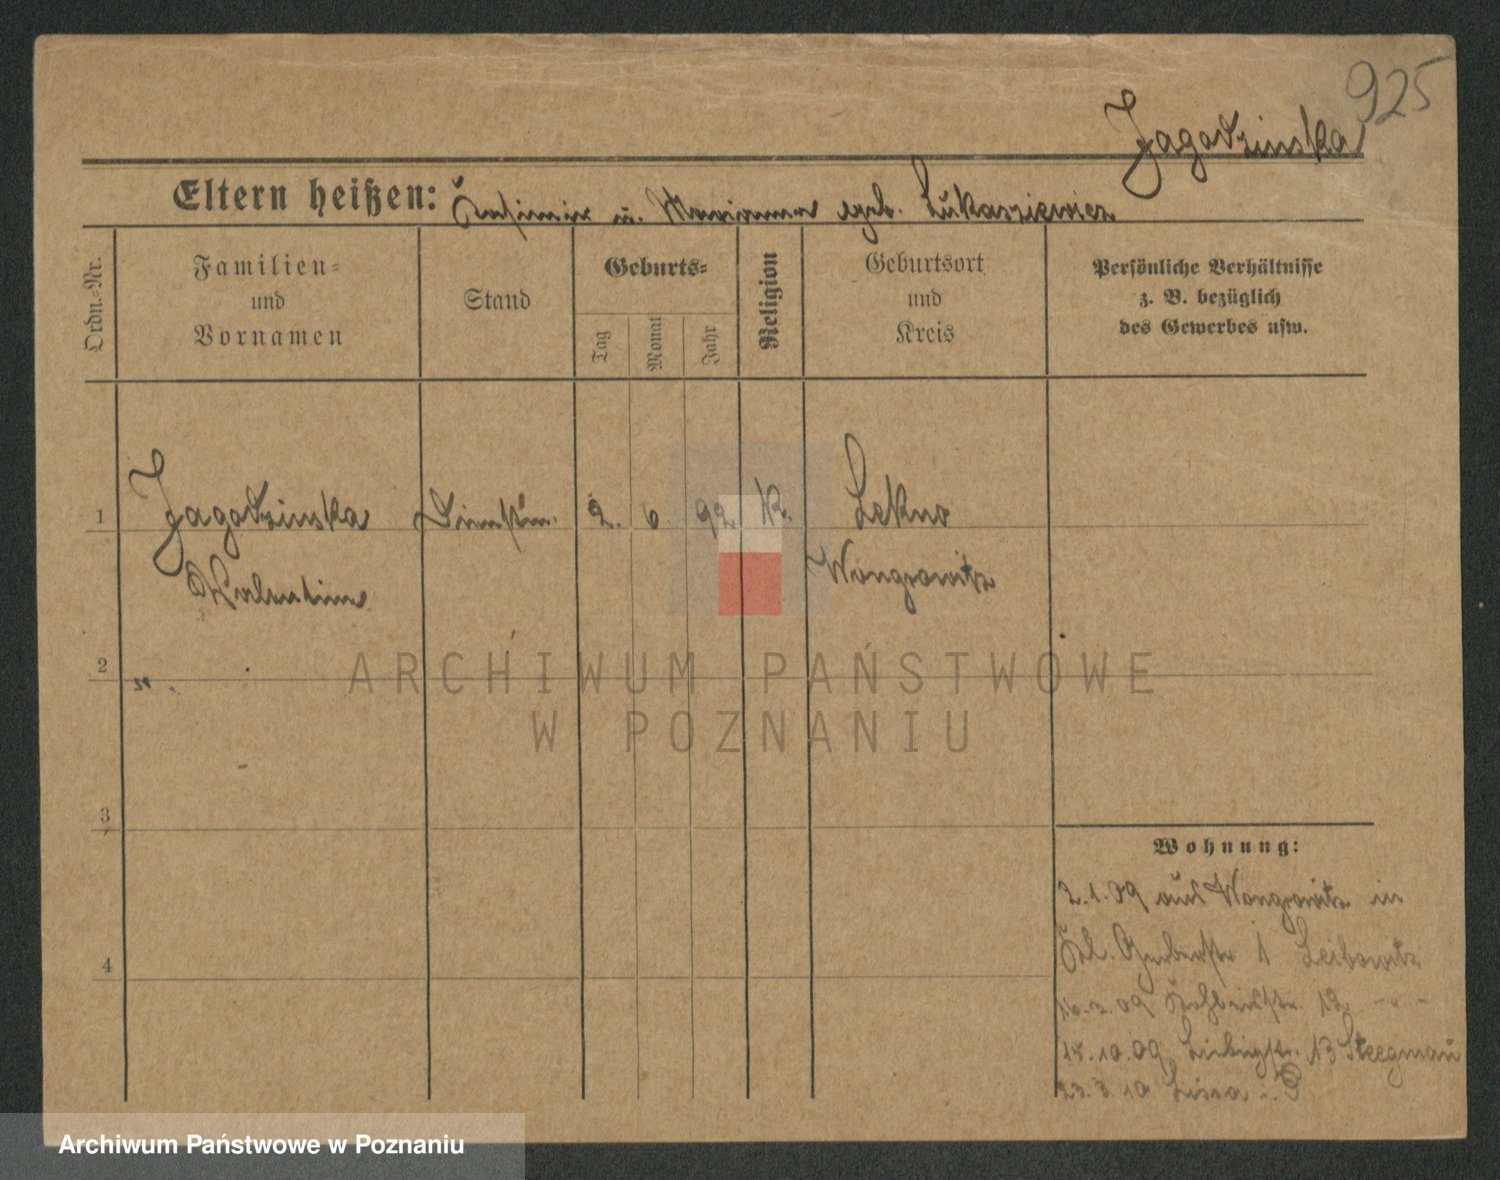 925
Jagodzinska
Eltern heißen: Kasimir u. Marianna geb. Łukasziewicz
Ordn.-Nr.
Familien-
und
Vornamen
Stand
Geburts-
Tag
Monat
Jahr
Religion
Geburtsort
und
Kreis
Persönliche Verhältnisse
z. B. bezüglich
des Gewerbes usw.
1 Jagodzinska Dienstm. 2. 6. 92 K. Lekno
Valentine Wongrowitz
2
3
4
Wohnung:
2.1.09 aus Wongrowitz in
Kl. Gerberstr 1 Leibowitz
16.3.09 12 " "
15.10.09 Liebigstr. 13 Steegmann
23.3.10 Lissa
ARCHIWUM PAŃSTWOWE
W POZNANIU
Archiwum Państwowe w Poznaniu